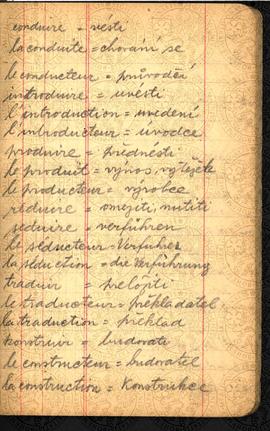 conduire = vésti
la conduite = chování se
le conducteur = průvodčí
introduire = uvésti
l'introduction = uvedení
l'introducteur = úvodce
produire = přednésti
le produit = výnos, výtěžek
le producteur = výrobce
réduire = omeziti, nutiti
séduire = verführen
le séducteur = Verführer
la séduction = die Verführung
traduir = přeložiti
le traducteur = překladatel
la traduction = překlad
konstruir = budovati
le constructeur = budovatel
la construction = Konstrukce